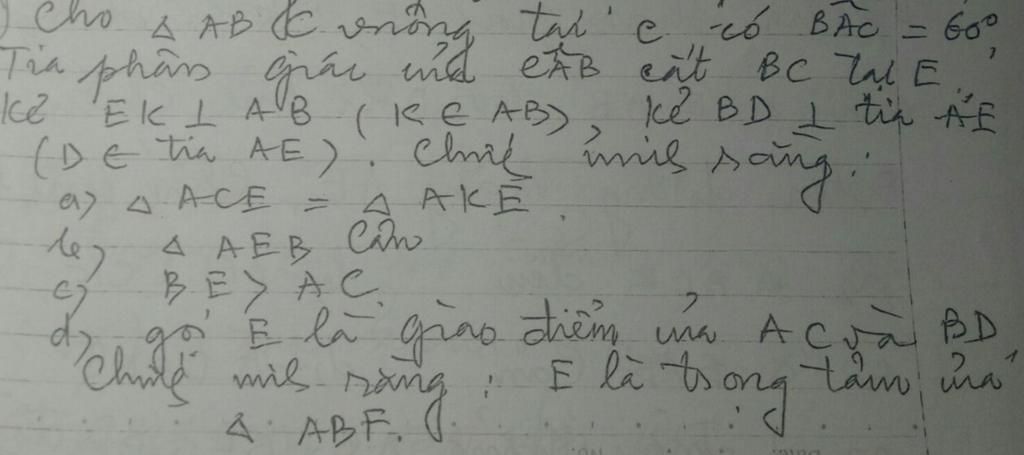 ) Cho △ ABC vuông tại C có BÂC = 60°
Tia phân giác của CÂB cắt BC tại E.
Kẻ EK ⊥ AB (K ∈ AB), kẻ BD ⊥ tia AE
(D ∈ tia AE). Chứng minh rằng:
a) △ ACE = △ AKE.
b) △ AEB cân
c) BE > AC.
d) gọi E là giao điểm của AC và BD
Chứng minh rằng: E là trọng tâm của
△ ABF.